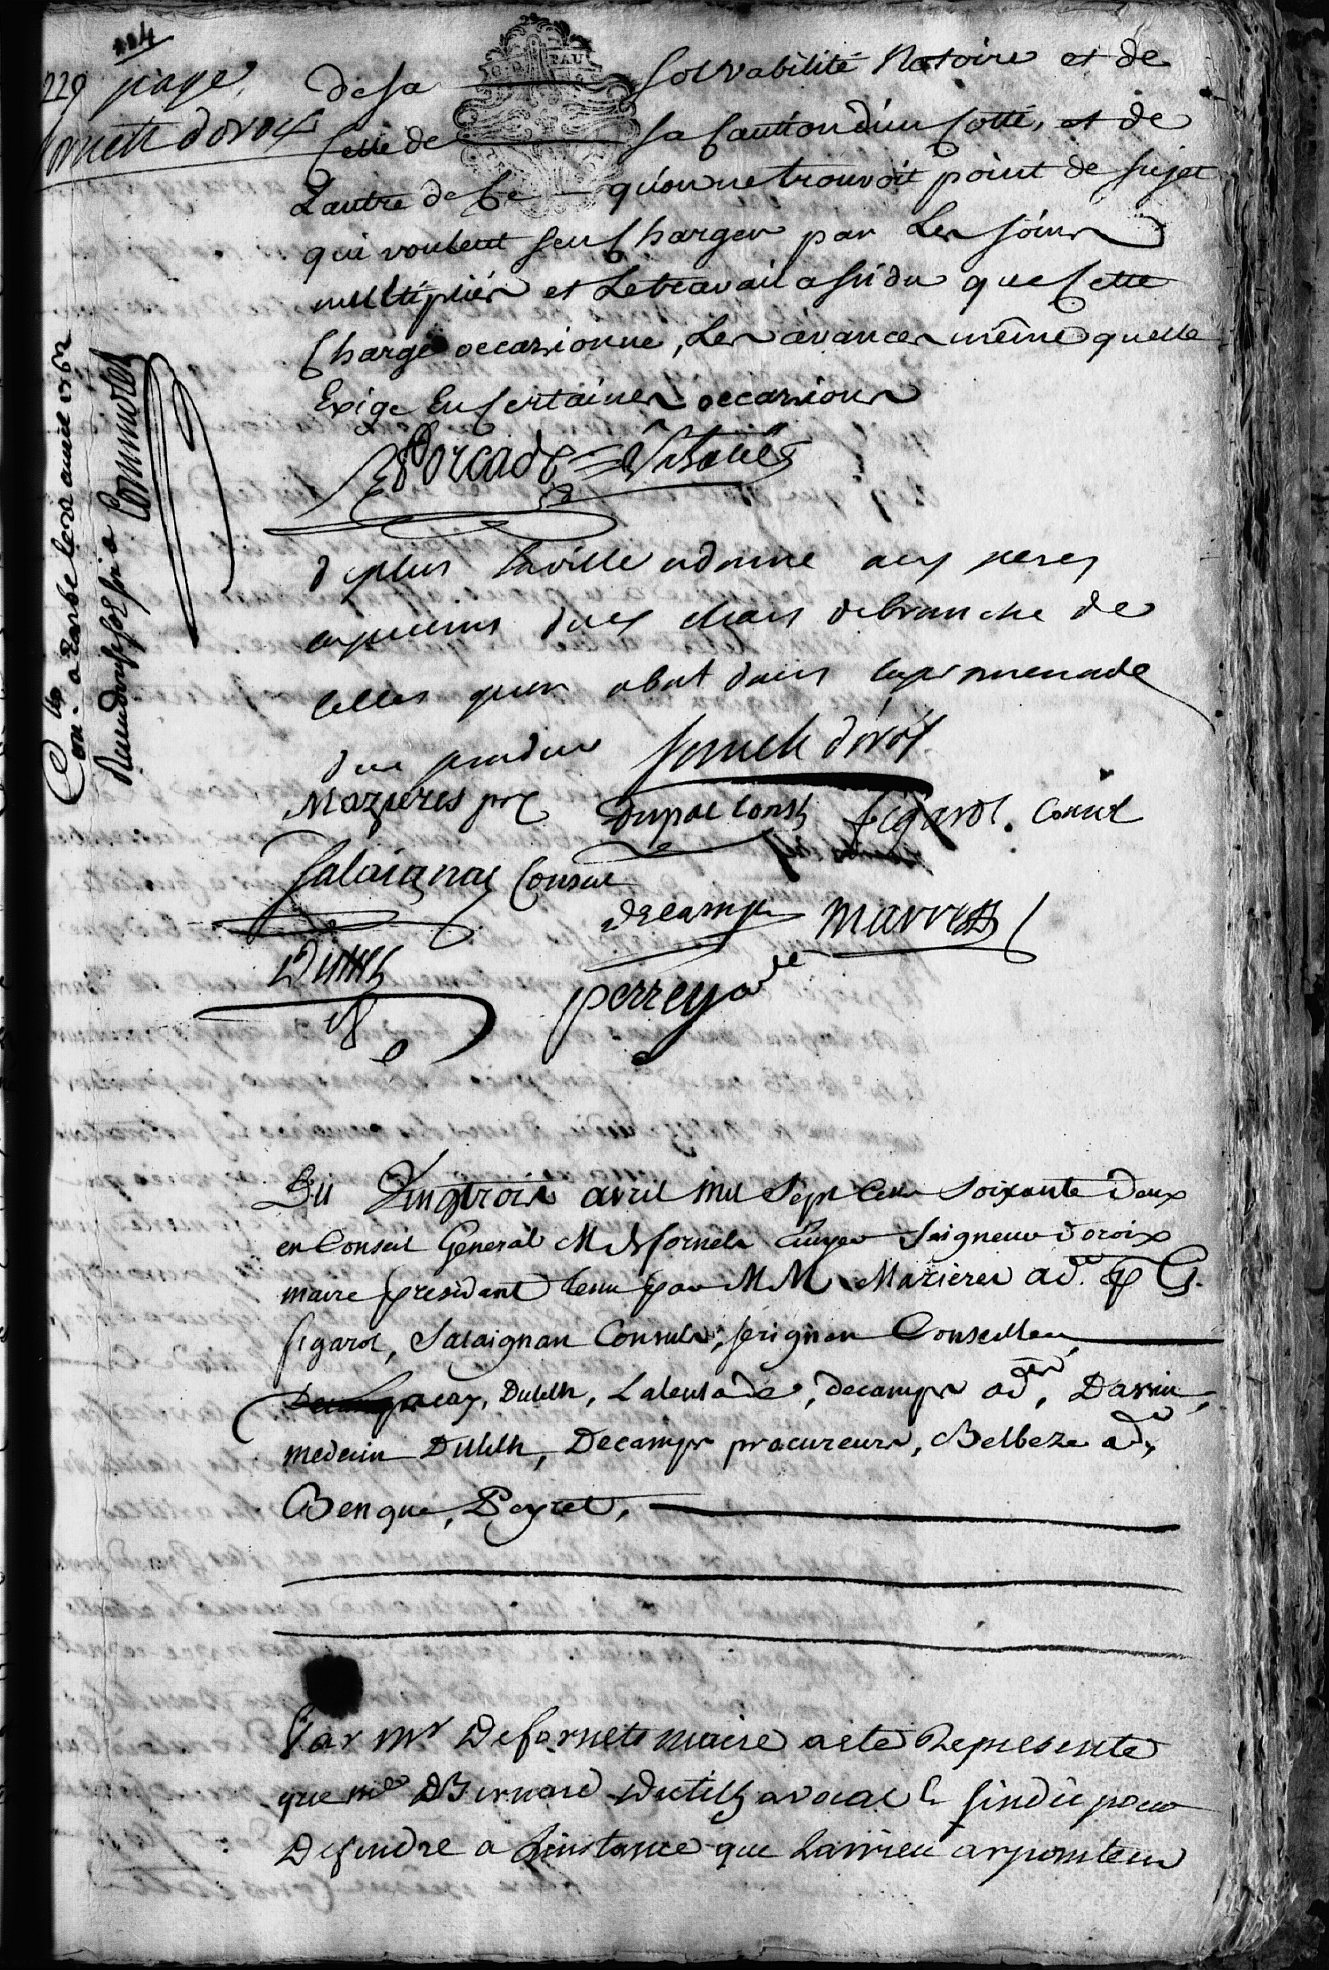 224
229 page,
fornetz d'oroix
de sa solvabilité Notoire et de
Celle de sa Caution d'un Cotté, et de
L'autre de Ce quon ne trouvoit point de sujet
qui voulut sen Charger par Les soins
multipliés et Le travail assidu que Cette
Charge occasionne, Les avances même quelle
Exige En Certaines occasions
Forcade
d plus la ville a donné aux peres
capucins deux chars de branche de
celles quon abat dans la promenade
du
fornetz d'oroix
Mazieres
Dupac Consl figarol. Consul
Salaignac Consul
decamps
Dutilh
perreya
Con. a Tarbe le
Commeres
Du Vingtrois avril mil Sept Cens Soixante Deux
en Conseil General M de fornets Ecuyer Seigneur doroix
maire president tenu par MM Mazieres ad. p G.
figarol, Salaignan Consuls, serignan Conseiller
Dutilh, Lalentade, decamps ad, Darrieu,
medecin Dutilh, Decamps procureurs, Belbeze ad,
Benque, Peyret,
Par Mr Defornets maire a eté Represente
que me Bernard Dutilh avocat Sindic pour
Defendre a Linstance que Larrieu arpenteur